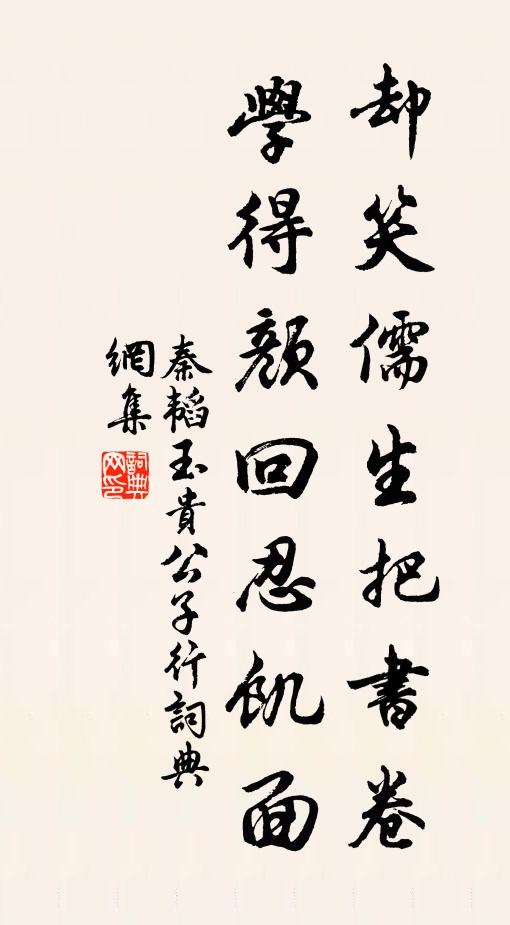 却笑儒生把書卷
學得顏回忍飢面
秦韜玉貴公子行詞典
網集
詞典網印